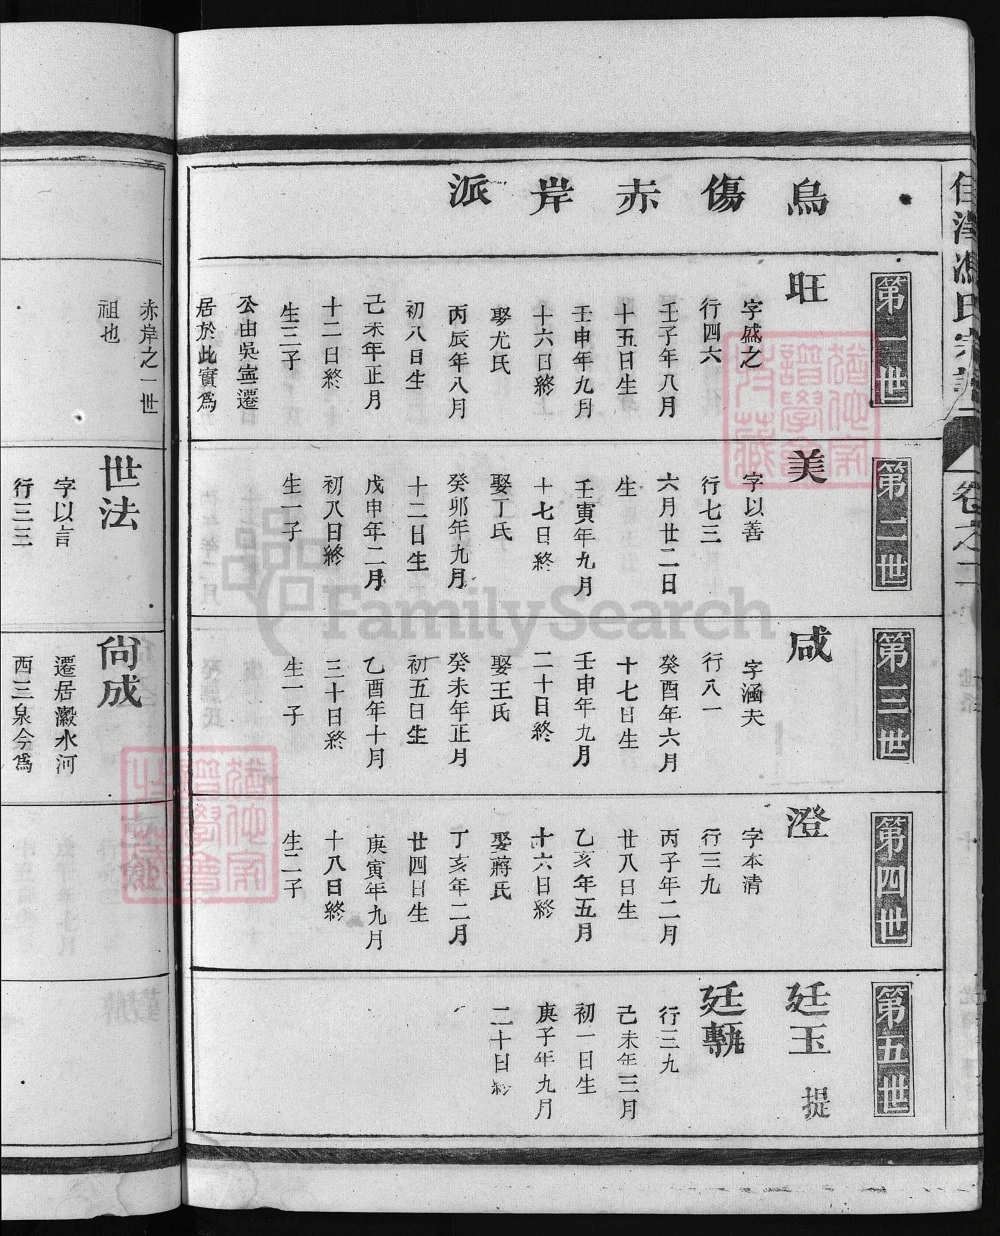 烏傷赤岸派
第一世
旺
字盛之
行四六
壬子年八月
十五日生
壬申年九月
十六日終
娶尤氏
丙辰年八月
初八日生
己未年正月
十二日終
生三子
公由吳寧遷
居於此實爲
赤岸之一世
祖也
第二世
美
字以善
行七三
六月廿二日
生
壬寅年九月
十七日終
娶丁氏
癸卯年九月
十二日生
戊申年二月
初八日終
生一子
世法
字以言
行三三
第三世
咸
字涵夫
行八一
癸酉年六月
十七日生
壬申年九月
二十日終
娶王氏
癸未年正月
初五日生
乙酉年十月
三十日終
生一子
尙成
遷居瀫水河
西三泉今爲
第四世
澄
字本清
行三九
丙子年二月
廿八日生
乙亥年五月
十六日終
娶蔣氏
丁亥年二月
廿四日生
庚寅年九月
十八日終
生二子
第五世
廷玉 提
廷
行三九
己未年三月
初一日生
庚子年九月
二十日終
馮氏宗譜
卷之二
FamilySearch
譜學會